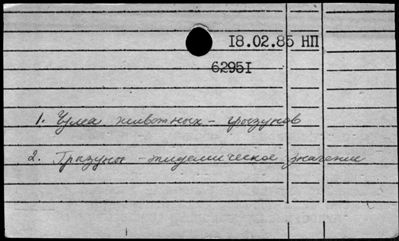 18.02.85 НП
62951
1. Чума животных - грызунов
2. Грызуны - эпидемическое значение